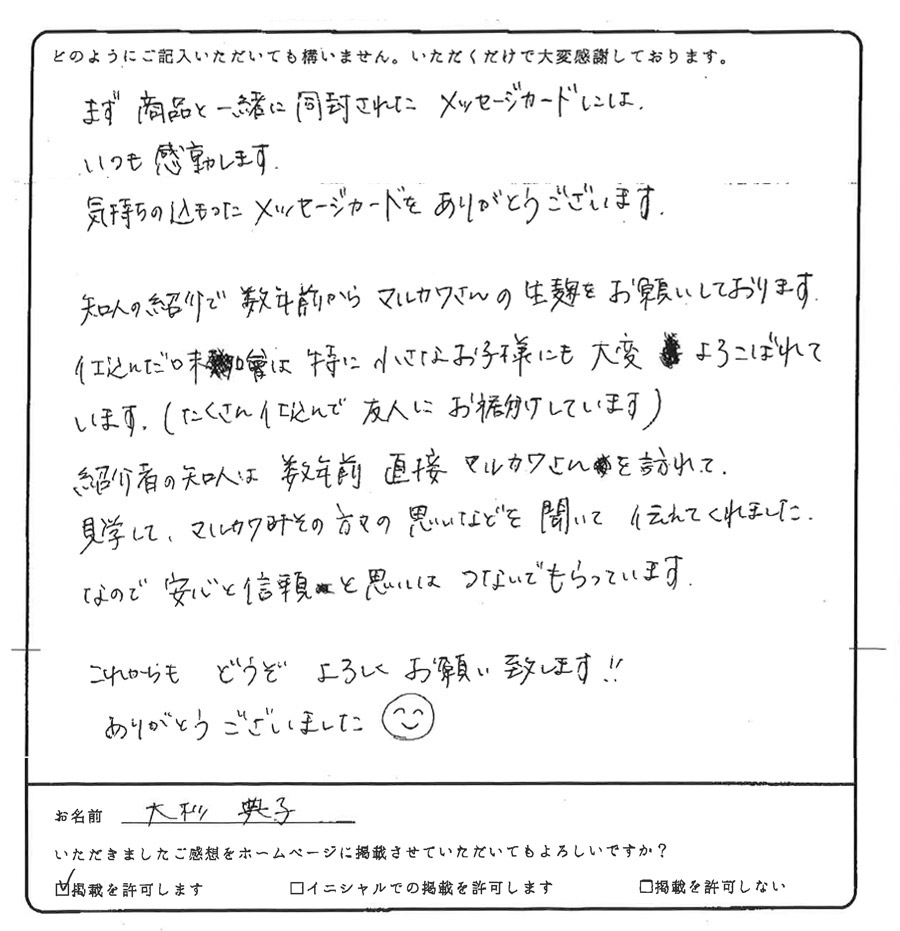 どのようにご記入いただいても構いません。いただくだけで大変感謝しております。
まず 商品と一緒に同封された メッセージカードには、
いつも感動します。
気持ちの込もった メッセージカードを ありがとうございます。
知人の紹介で 数年前から マルカワさんの 生麹を お願いしております。
仕込んだ味噌は 特に 小さなお子様にも 大変 よろこばれて
います。(たくさん仕込んで 友人に お裾分けしています)
紹介者の知人は 数年前 直接 マルカワさんを訪れて、
見学して、マルカワみその方々の 思いなどを 聞いて 伝えてくれました。
なので 安心と信頼と思いは つないでもらっています。
これからも どうぞ よろしく お願い致します!!
ありがとうございました
お名前 大杉 典子
いただきましたご感想をホームページに掲載させていただいてもよろしいですか？
☑掲載を許可します □イニシャルでの掲載を許可します □掲載を許可しない